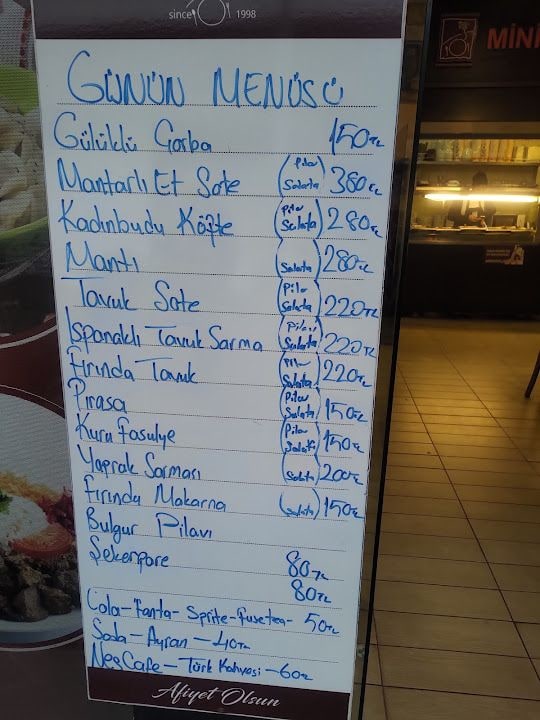 since 1998
MİNİ
GÜNÜN MENÜSÜ
Gülüklü Çorba 150TL
Mantarlı Et Sote (Pilav Salata) 380TL
Kadınbudu Köfte (Pilav Salata) 280TL
Mantı (Salata) 280TL
Tavuk Sote (Pilav Salata) 220TL
Ispanaklı Tavuk Sarma (Pilav Salata) 220TL
Fırında Tavuk (Pilav Salata) 220TL
Pırasa (Pilav Salata) 150TL
Kuru fasulye (Pilav Salata) 150TL
Yaprak Sarması (Salata) 200TL
Fırında Makarna (Salata) 150TL
Bulgur Pilavı 80TL
Şekerpare 80TL
Cola-Fanta-Sprite-Fusetea- 50TL
Soda-Ayran-40TL
NesCafe-Türk Kahvesi-60TL
Afiyet Olsun